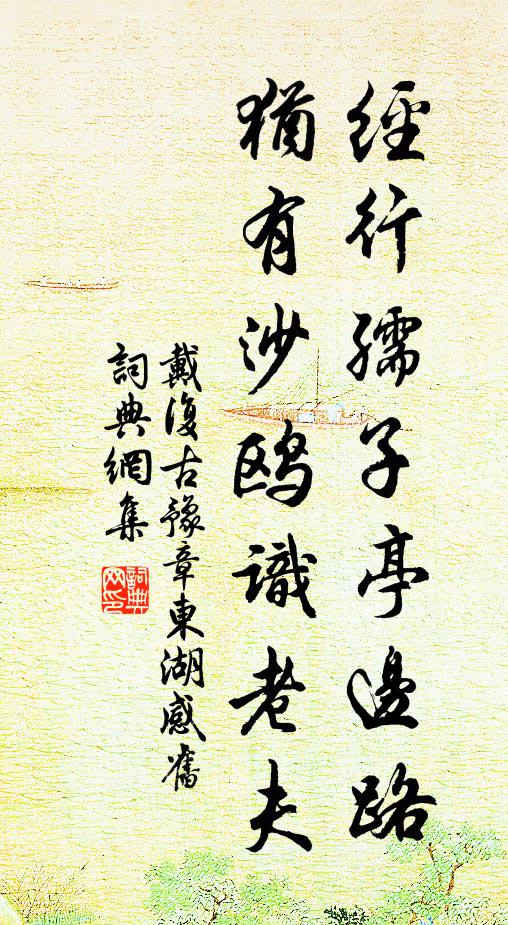 經行孺子亭邊路
猶有沙鸥識老夫
戴復古豫章東湖感舊
詞典網集
詞典網印